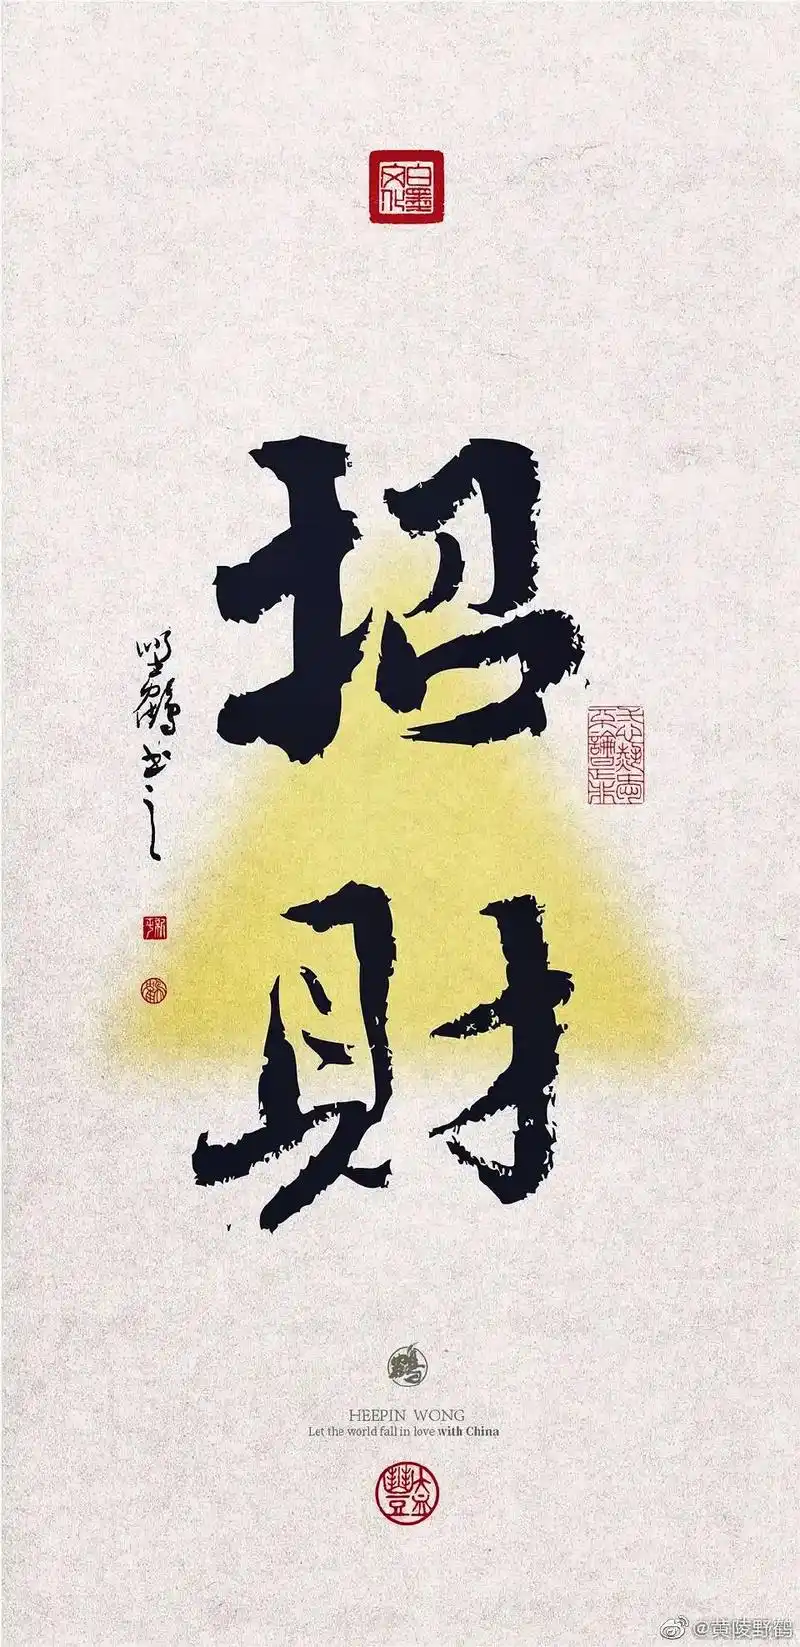 白墨
文化
招
財
野鶴书之
鶴
HEEPIN WONG
Let the world fall in love with China
@黄陵野鹤